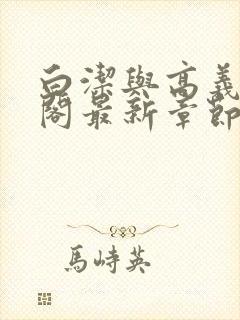 白潔與高義
閣最新章節
馬峙英